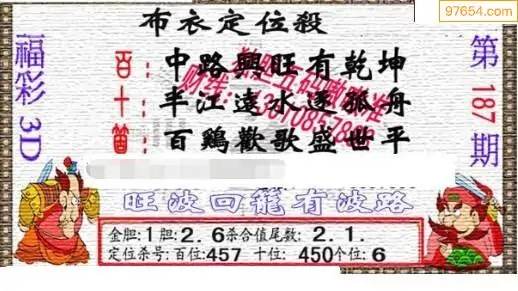 97654.com
布衣定位殺
福彩3D
第187期
百：中路興旺有乾坤
十：半江遠水逐孤舟
笛：百鷄歡歌盛世平
旺波回龍有波路
金胆:1胆:2.6杀合值尾数:2.1.
定位杀号:百位:457 十位:450个位:6